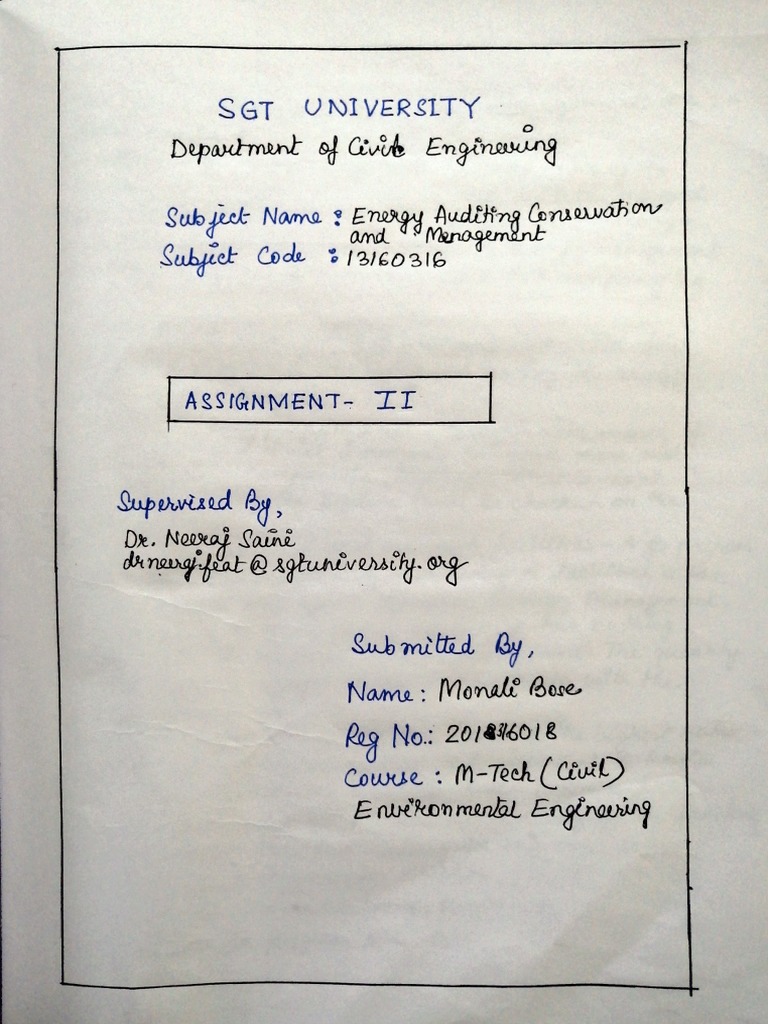 SGT UNIVERSITY
Department of Civil Engineering
Subject Name : Energy Auditing Conservation
and Management
Subject Code : 13160316
ASSIGNMENT- II
Supervised By,
Dr. Neeraj Saini
drneerj.feat@sgtuniversity.org
Submitted By,
Name : Monali Bose
Reg No.:
Course : M-Tech (Civil)
Environmental Engineering